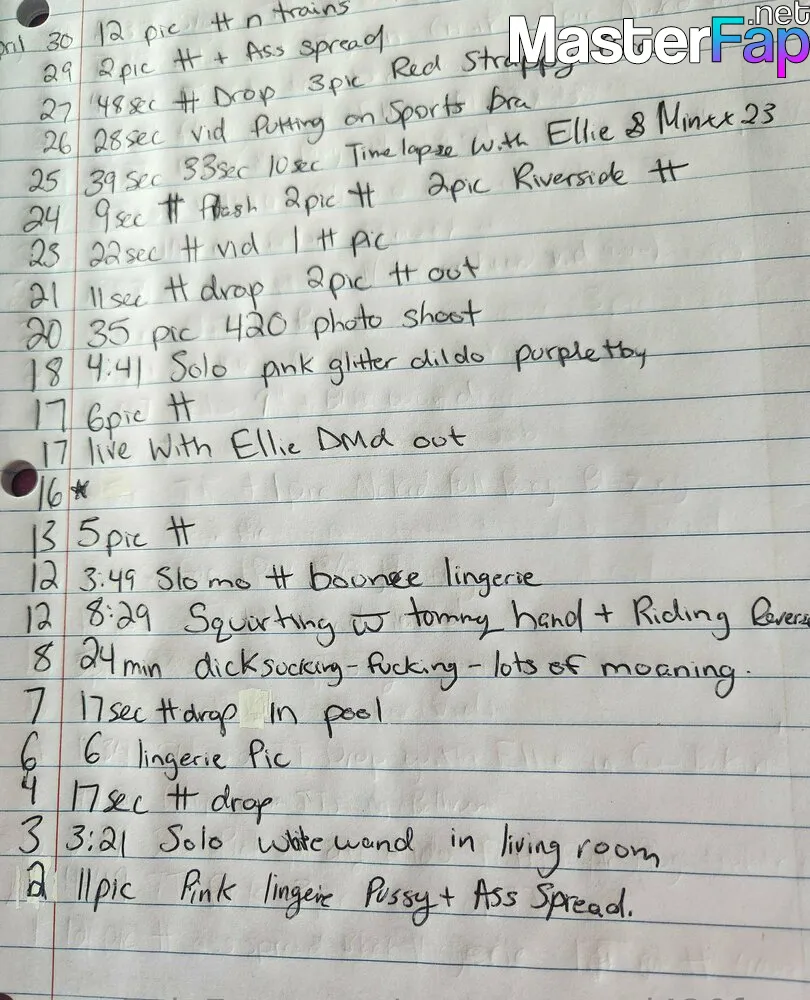 MasterFap.net
30 12 pic tt n trains
29 2pic tt + Ass spread
27 48sec tt Drop 3pic Red Strappy
26 28sec vid Putting on Sports bra
25 39 sec 33sec 10sec Timelapse With Ellie & Minxx 23
24 9sec tt flash 2pic tt 2pic Riverside tt
23 22sec tt vid 1 tt pic
21 11sec tt drop 2pic tt out
20 35 pic 420 photo shoot
18 4:41 Solo pink glitter dildo purple toy
17 6pic tt
17 live With Ellie DMd out
16*
13 5pic tt
12 3:49 Slo mo tt bounce lingerie
12 8:29 Squirting w tommy hand + Riding Reverse
8 24min dicksucking - fucking - lots of moaning.
7 17sec tt drop in pool
6 6 lingerie Pic
4 17sec tt drop
3 3:21 Solo white wand in living room
2 11pic Pink lingerie Pussy + Ass Spread.